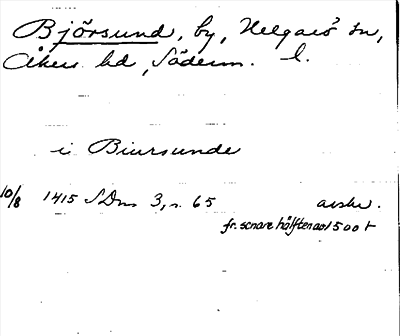 Björsund, by, Helgarö sn,
Åkers hd, Söderm. l.
i Biursunde
10/8 1415 SDns 3, s. 65 avskr.
fr. senare hälften av 1500 t